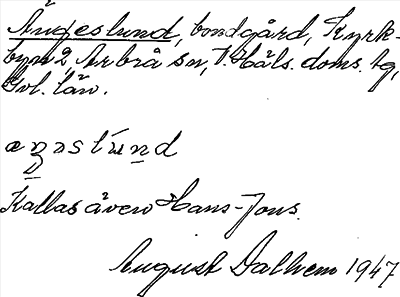 Ängeslund, bondgård, Kyrk-
byn 2, Arbrå sn, V. Häls. doms. tg,
Gvl. län.
Kallas även Hans-Jons.
August Dalhem 1947